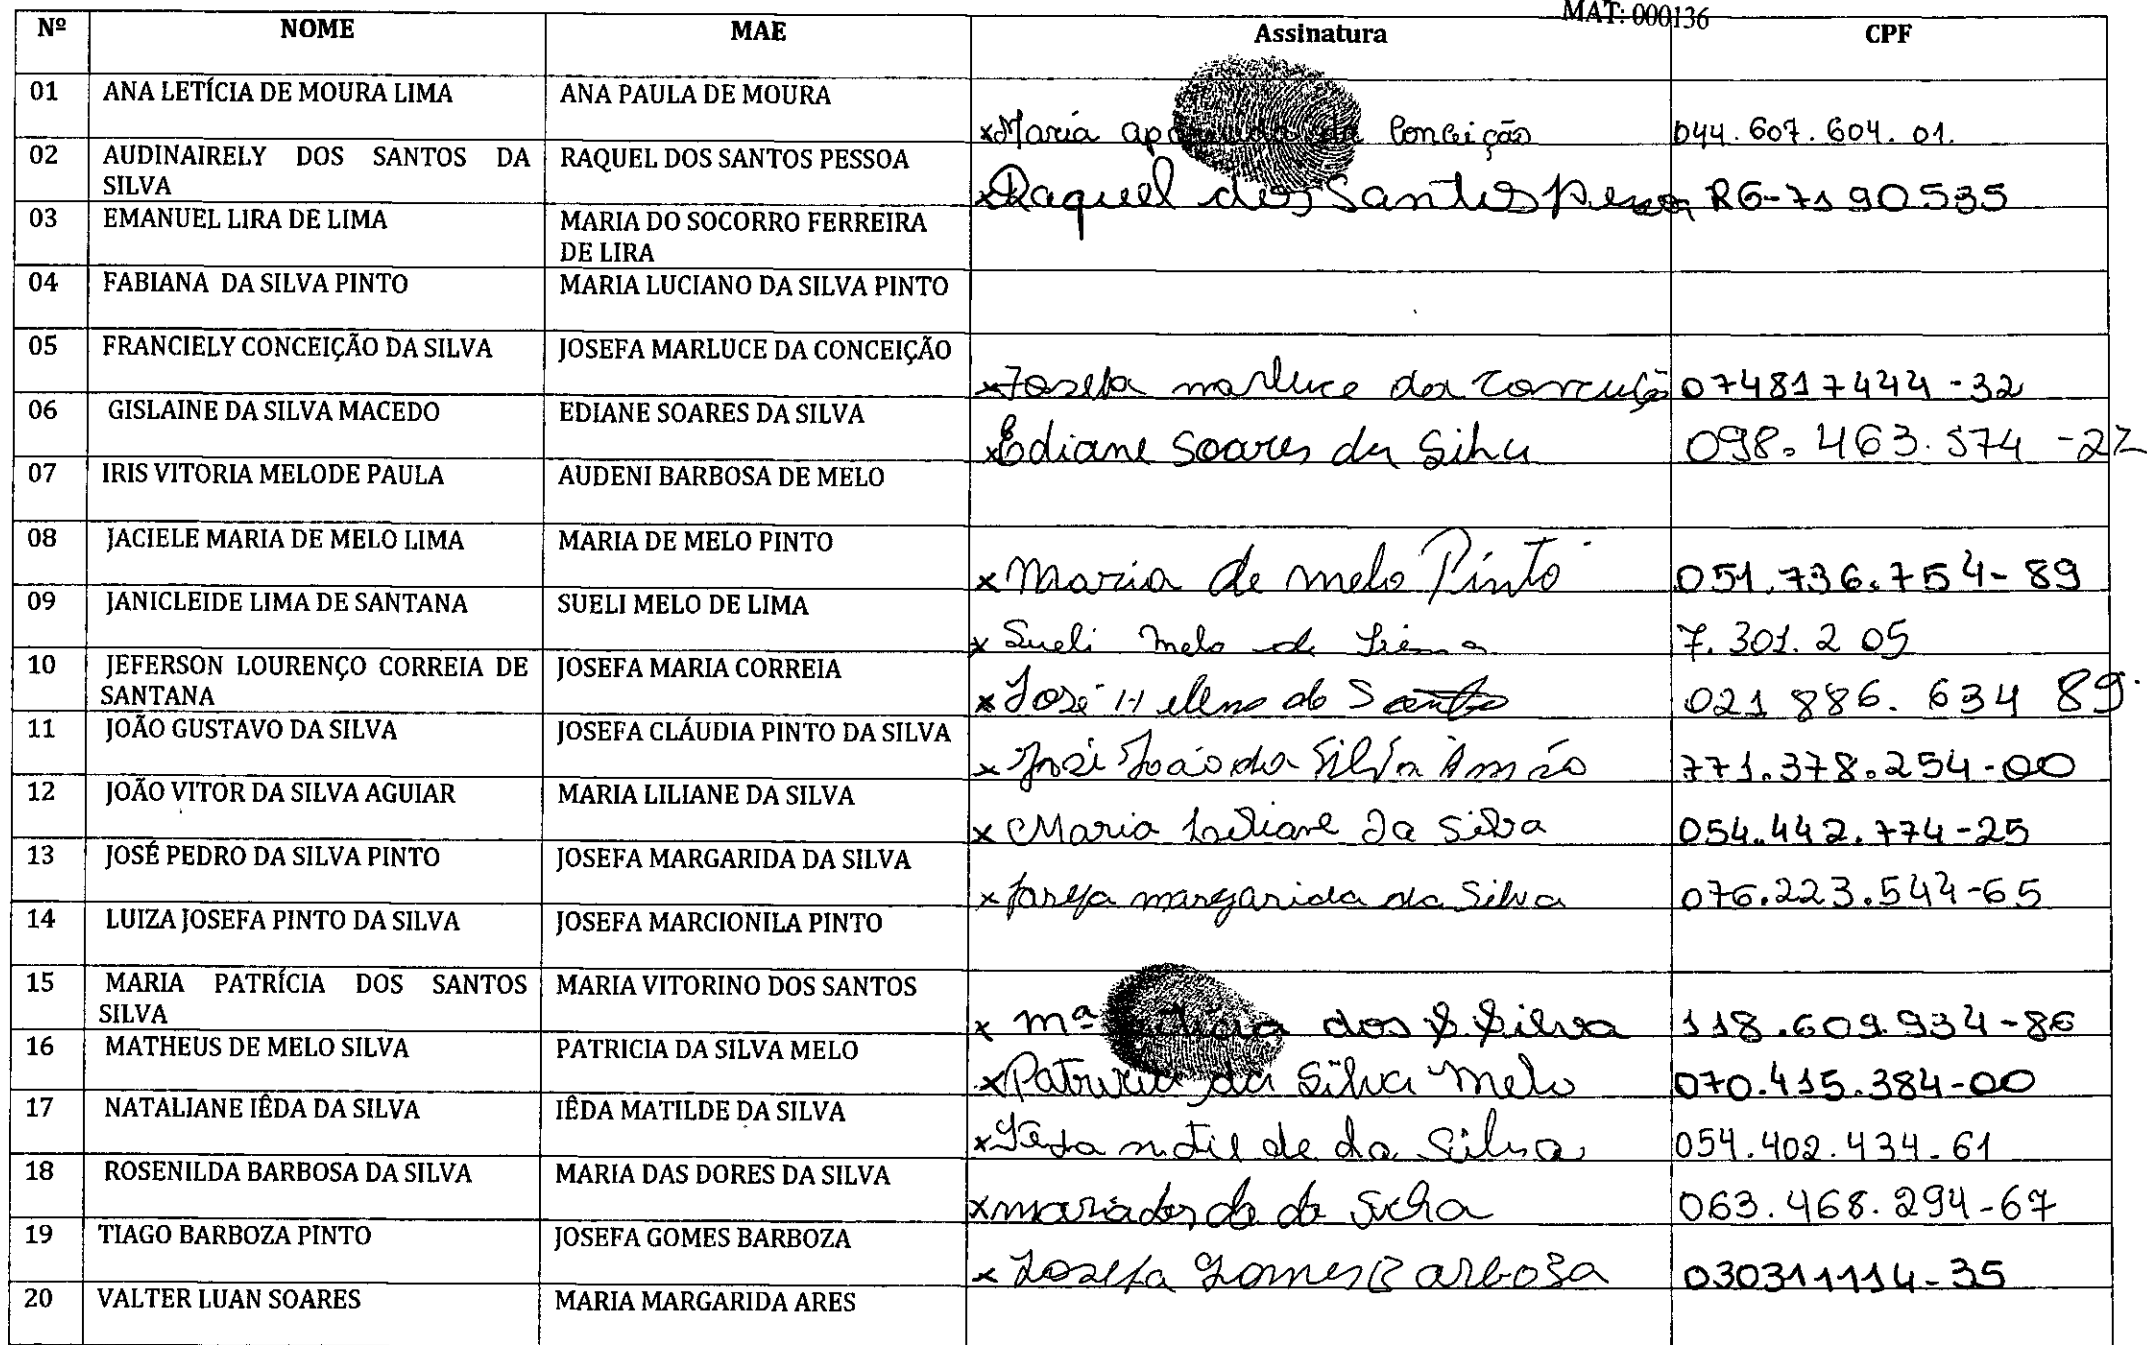 MAT: 000136
Nº NOME MAE Assinatura CPF
01 ANA LETÍCIA DE MOURA LIMA ANA PAULA DE MOURA
xMaria da Conceição 044.607.604.01.
02 AUDINAIRELY DOS SANTOS DA RAQUEL DOS SANTOS PESSOA
SILVA
xRaquel dos Santos RG-7190535
03 EMANUEL LIRA DE LIMA MARIA DO SOCORRO FERREIRA
DE LIRA
04 FABIANA DA SILVA PINTO MARIA LUCIANO DA SILVA PINTO
05 FRANCIELY CONCEIÇÃO DA SILVA JOSEFA MARLUCE DA CONCEIÇÃO
xJosefa marluce da 074817444-32
06 GISLAINE DA SILVA MACEDO EDIANE SOARES DA SILVA
xEdiane Soares da Silva 098.463.574-22
07 IRIS VITORIA MELODE PAULA AUDENI BARBOSA DE MELO
08 JACIELE MARIA DE MELO LIMA MARIA DE MELO PINTO
x Maria de melo Pinto 051.736.754-89
09 JANICLEIDE LIMA DE SANTANA SUELI MELO DE LIMA
x Sueli Melo de Lima 7.301.205
10 JEFERSON LOURENÇO CORREIA DE JOSEFA MARIA CORREIA
SANTANA
x José 021 886. 634 89.
11 JOÃO GUSTAVO DA SILVA JOSEFA CLÁUDIA PINTO DA SILVA
x José João da Silva 771.378.254-00
12 JOÃO VITOR DA SILVA AGUIAR MARIA LILIANE DA SILVA
x Maria Liliane da Silva 054.442.774-25
13 JOSÉ PEDRO DA SILVA PINTO JOSEFA MARGARIDA DA SILVA
x Josefa margarida da Silva 076.223.544-65
14 LUIZA JOSEFA PINTO DA SILVA JOSEFA MARCIONILA PINTO
15 MARIA PATRÍCIA DOS SANTOS MARIA VITORINO DOS SANTOS
SILVA
x mª dos S. Silva 118.609.934-86
16 MATHEUS DE MELO SILVA PATRICIA DA SILVA MELO
xPatricia da Silva Melo 070.415.384-00
17 NATALIANE IÊDA DA SILVA IÊDA MATILDE DA SILVA
x da Silva 054.402.434-61
18 ROSENILDA BARBOSA DA SILVA MARIA DAS DORES DA SILVA
x 063.468.294-67
19 TIAGO BARBOZA PINTO JOSEFA GOMES BARBOZA
x Josefa Gomes Barbosa 030311114-35
20 VALTER LUAN SOARES MARIA MARGARIDA ARES